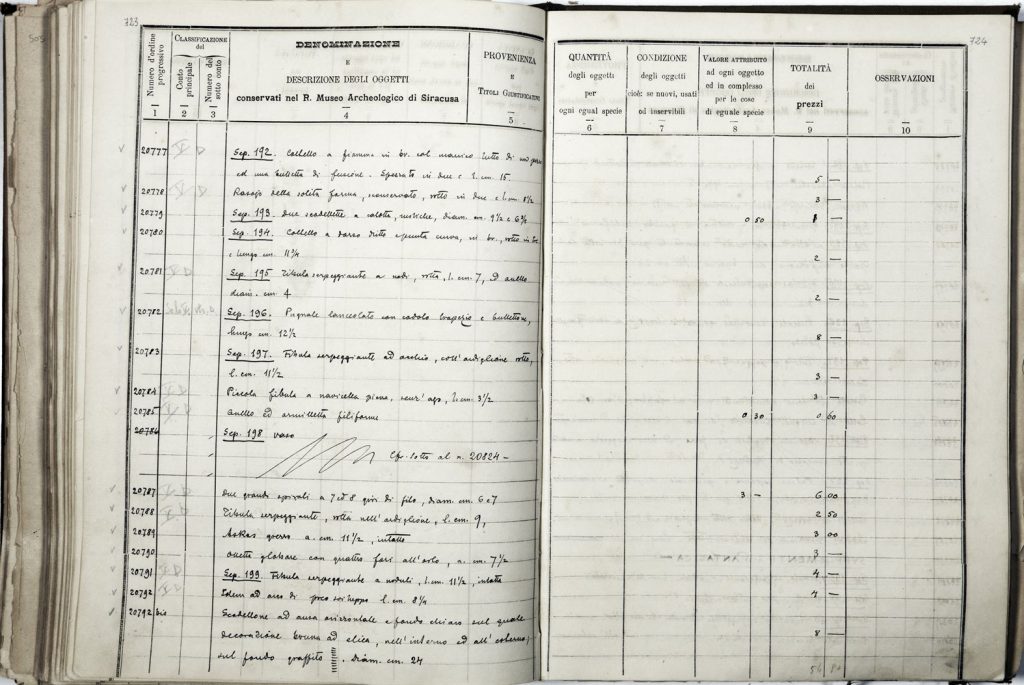 723
CLASSIFICAZIONE
del
Numero d'ordine
progressivo
Conto
principale
Numero del
sotto conto
DENOMINAZIONE
E
DESCRIZIONE DEGLI OGGETTI
conservati nel R. Museo Archeologico di Siracusa
PROVENIENZA
E
TITOLI GIUSTIFICATIVI
1 2 3 4 5
20777 Sep. 192. Coltello a fiamma in br. col manico tutto di un pezzo
ed una bulletta di fusione. Spezzato in due e l. cm. 15
20778 Rasojo della solita forma, rotto in due e l. cm. 8 1/2
20779 Sep. 193. Due scodellette a calotta, rustiche, diam. cm. 9 1/2 e 6 3/4
20780 Sep. 194. Coltello a dorso dritto e punta curva, in br., rotto in tre
e lungo cm. 11 3/4
20781 Sep. 195 Fibula serpeggiante a nodi, rotta, l. cm. 7, ed anello
diam. cm. 4
20782 Sep. 196. Pugnale lanceolato con codolo trapezio e bullettone,
lungo cm. 12 1/2
20783 Sep. 197. Fibula serpeggiante ad occhio, coll'ardiglione rotto,
l. cm. 11 1/2
20784 Piccola fibula a navicella piena, senz'ago, l. cm. 3 1/2
20785 Anello ed armilletta filiforme
20786 Sep. 198 vaso
Cfr. sotto al n. 20824 —
20787 Due grandi spirali a 7 ed 8 giri di filo, diam. cm. 6 e 7
20788 Fibula serpeggiante, rotta nell'ardiglione, l. cm. 9,
20789 Askos a. cm. 11 1/2, intatto
20790 Olletta globare con quattro fori all'orlo, a. cm. 7 1/2
20791 Sep. 199. Fibula serpeggiante a noduli, l. cm. 11 1/2, intatta
20792 Idem ad arco di poco sviluppo l. cm. 8 1/4
20792 bis Scodellone ad ansa orizzontale e fondo chiaro sul quale
decorazione bruna ad elica, nell'interno ed all'esterno;
sul fondo graffito. Diam. cm. 24
724
QUANTITÀ
degli oggetti
per
ogni egual specie
6
CONDIZIONE
degli oggetti
cioè: se nuovi, usati
od inservibili
7
VALORE ATTRIBUITO
ad ogni oggetto
ed in complesso
per le cose
di eguale specie
8
TOTALITÀ
dei
prezzi
9
OSSERVAZIONI
10
5 —
3 —
0 50 1 —
2 —
2 —
8 —
3 —
3 —
0 30 0 60
3 — 6 00
2 50
3 00
3 —
4 —
4 —
8 —